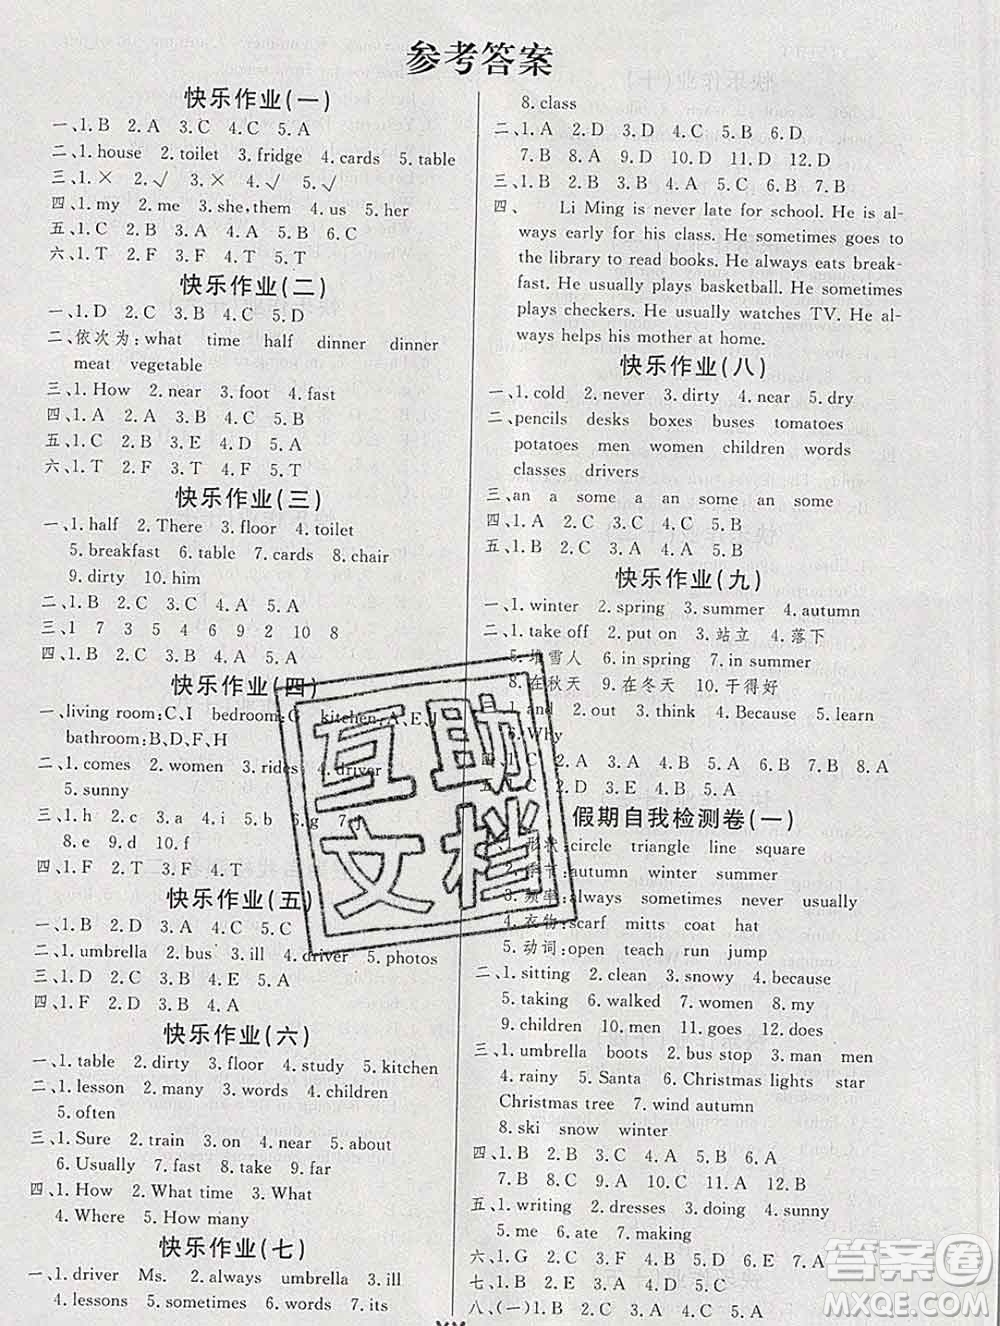 参考答案
快乐作业(一)
一、1. B 2. A 3. C 4. C 5. A
二、1. house 2. toilet 3. fridge 4. cards 5. table
三、1. × 2. √ 3. × 4. √ 5. √
四、1. my 2. me 3. she,them 4. us 5. her
五、1. C 2. B 3. A 4. D 5. B 6. C
六、1. T 2. F 3. F 4. T 5. T
快乐作业(二)
一、1. B 2. A 3. C 4. C 5. D
二、依次为:what time half dinner dinner
meat vegetable
三、1. How 2. near 3. foot 4. fast
四、1. A 2. A 3. B 4. A 5. B
五、1. C 2. A 3. B 4. D 5. A
六、1. T 2. F 3. T 4. F 5. T
快乐作业(三)
一、1. half 2. There 3. floor 4. toilet
5. breakfast 6. table 7. cards 8. chair
9. dirty 10. him
二、1. B 2. C 3. A 4. B 5. A
三、1 7 3 5 4 6 9 2 10 8
四、1. B 2. A 3. A 4. B 5. A
快乐作业(四)
一、living room:C、I bedroom:G kitchen:A、E、J
bathroom:B、D、F、H
二、1. comes 2. women 3. rides 4. driver
5. sunny
三、1. h 2. c 3. a 4. i 5. b 6. g 7. j
8. e 9. d 10. f
四、1. F 2. F 3. T 4. T
快乐作业(五)
一、1. B 2. D 3. A 4. C 5. C
二、1. umbrella 2. bus 3. ill 4. driver 5. photos
三、1. B 2. C 3. A 4. D 5. A
四、1. F 2. D 3. B 4. A
快乐作业(六)
一、1. table 2. dirty 3. floor 4. study 5. kitchen
二、1. lesson 2. many 3. words 4. children
5. often
三、1. Sure 2. train 3. on 4. near 5. about
6. Usually 7. fast 8. take 9. far
四、1. How 2. What time 3. What
4. Where 5. How many
快乐作业(七)
一、1. driver Ms. 2. always umbrella 3. ill
4. lessons 5. sometimes 6. words 7. its
8. class
二、1. A 2. D 3. D 4. C 5. B 6. D
7. B 8. A 9. D 10. A 11. D 12. D
三、1. B 2. A 3. C 4. D 5. B 6. B 7. B
四、 Li Ming is never late for school. He is al-
ways early for his class. He sometimes goes to
the library to read books. He always eats break-
fast. He usually plays basketball. He sometimes
plays checkers. He usually watches TV. He al-
ways helps his mother at home.
快乐作业(八)
一、1. cold 2. never 3. dirty 4. near 5. dry
二、pencils desks boxes buses tomatoes
potatoes men women children words
classes drivers
三、an a some a an some an some
四、1. C 2. A 3. D 4. C 5. B
五、1. B 2. C 3. A 4. A 5. B
快乐作业(九)
一、1. winter 2. spring 3. summer 4. autumn
二、1. take off 2. put on 3. 站立 4. 落下
5. 堆雪人 6. in spring 7. in summer
8. 在秋天 9. 在冬天 10. 干得好
1. and 2. out 3. think 4. Because 5. learn
6. Why
四、1. C 2. A 3. B 4. B 5. C 6. B 7. C 8. A
五、1. C 2. D 3. B 4. C 5. A
假期自我检测卷(一)
一、1. 形状:circle triangle line square
2. 季节:autumn winter summer
3. 频率:always sometimes never usually
4. 衣物:scarf mitts coat hat
5. 动词:open teach run jump
二、1. sitting 2. clean 3. snowy 4. because
5. taking 6. walked 7. women 8. my
9. children 10. men 11. goes 12. does
三、1. umbrella boots 2. bus stop 3. man men
4. rainy 5. Santa 6. Christmas lights star
Christmas tree 7. wind autumn
8. ski snow winter
四、1. B 2. B 3. C 4. C 5. B 6. A
7. C 8. B 9. B 10. B 11. A 12. B
五、1. writing 2. dresses 3. doing 4. sunny
5. me 6. ate 7. making
六、1. G 2. C 3. B 4. F 5. D 6. E 7. A
七、1. B 2. A 3. D 4. C 5. D
八、(一)1. B 2. C 3. A 4. B 5. A
互助
文档
答案圈
MXQE.COM